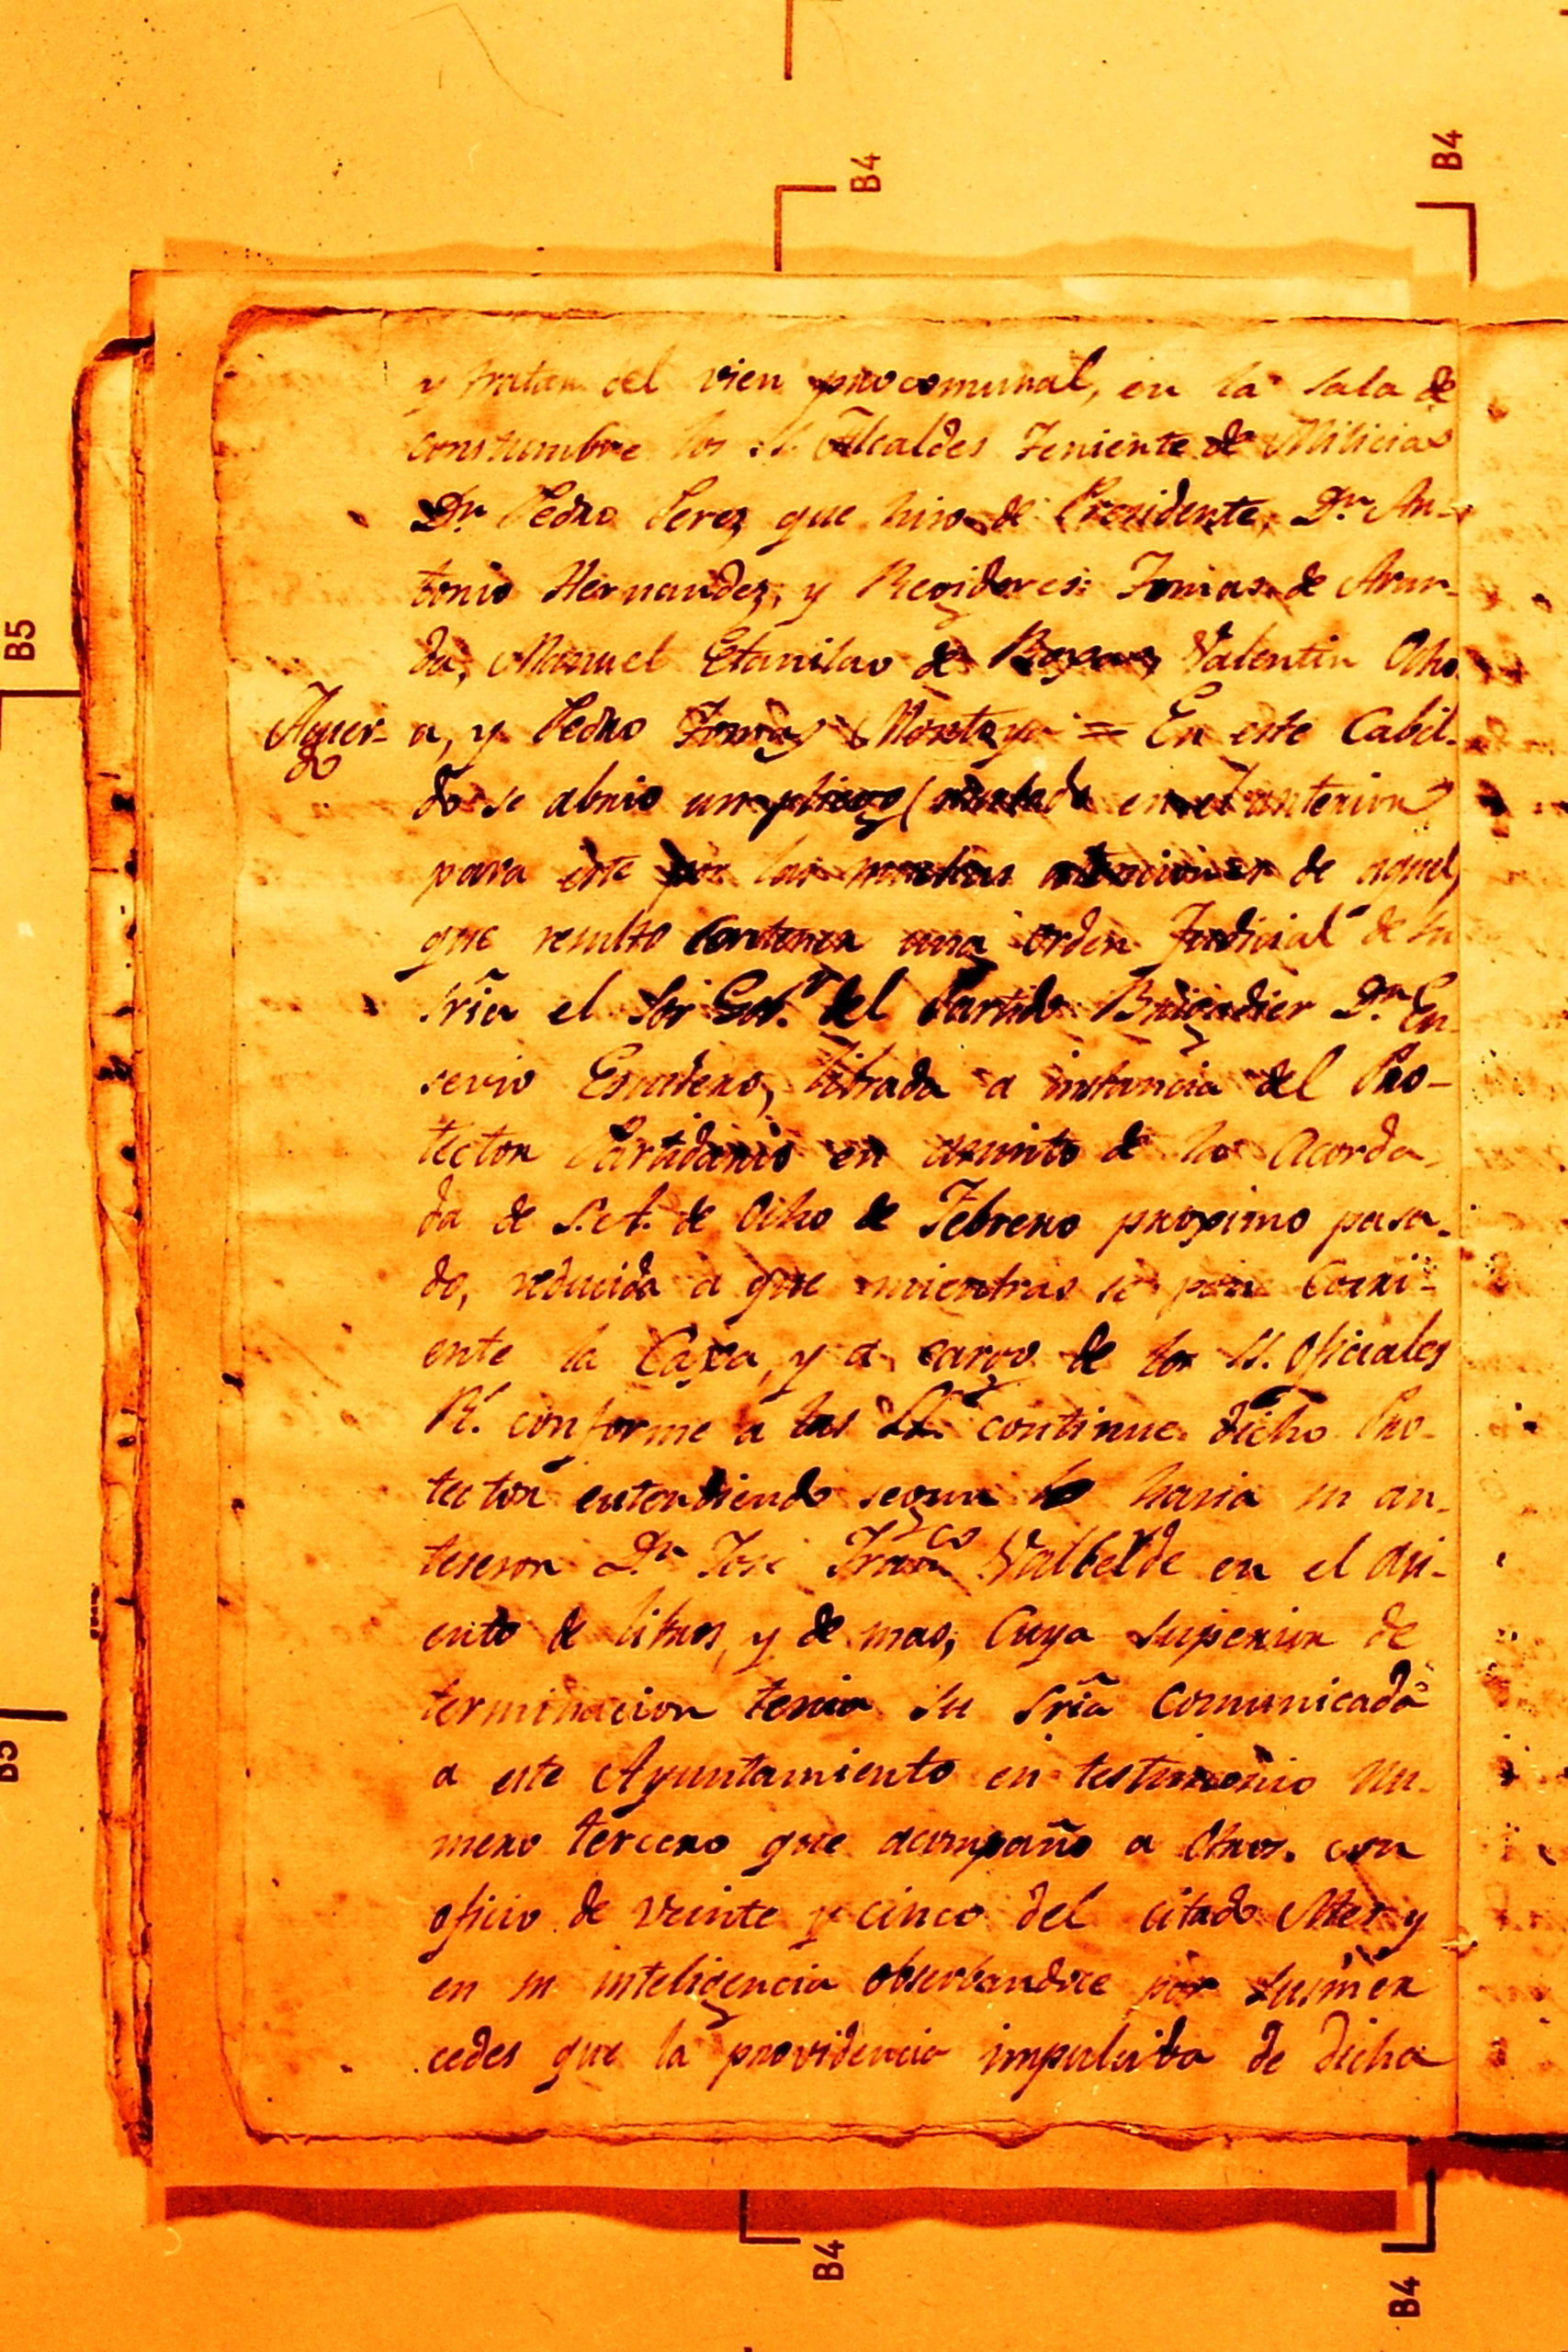 B4
B4
B5
y tratar del vien procomunal, en la sala de
constumbre los SS. Alcaldes Teniente de Milicias
Dn. Pedro Perez que hiso de Presidente, Dn. An-
tonio Hernandez, y Regidores: Tomas de Aran-
da, Manuel Etanilao de Valentin Ocho
Acuer-
do
a, y Pedro Tomas Montoya = En este Cabil-
do se abrio un pliego ( en el anterior)
para este por las muchas atenciones de aquel,
que resulto contener una orden Judicial de su
sria el Sor Gor. del Partido Brigadier Dn. Eu-
sevio Escudero, librada a instancia del Pro-
tector Partidario en asunto de la Acorda-
da de S.A. de Ocho de Febrero proximo pasa-
do, reducida a que mientras se pon Corri-
ente la Caxa, y a cargo de los SS. Oficiales
Rs. conforme a las LL. continue dicho Pro-
tector entendiendo segun lo hasia su an-
teseror Dn. Jose Franco Valbelde en el asi-
ento de libros, y de mas; Cuya Superior de
terminacion tenia su sria Comunicada
a este Ayuntamiento en testimonio Nu-
mero tercero que acompaño a Otros. con
oficio de veinte y cinco del citado Mes y
en su inteligencia observandose por susmer
cedes que la providencia impulsiba de dicha
B5
B4
B4